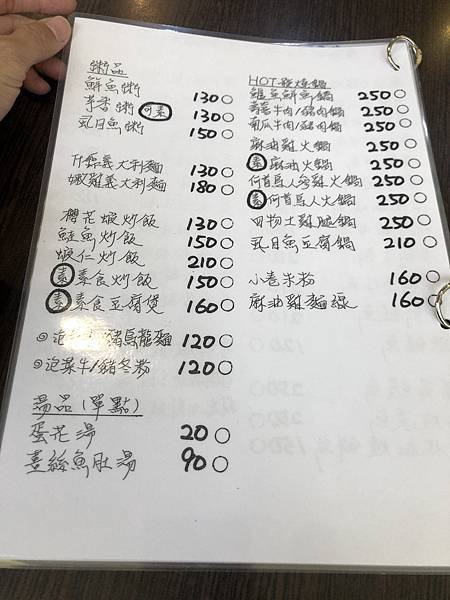 粥品
鮮魚粥 130
芋香粥 可素 130
虱目魚粥 150
什錦義大利麵 130
嫩雞義大利麵 180
櫻花蝦炒飯 130
鮭魚炒飯 150
蝦仁炒飯 210
素 素食炒飯 150
素 素食豆腐煲 160
泡 豬烏龍麵 120
泡菜牛/豬冬粉 120
湯品(單點)
蛋花湯 20
薑絲魚肚湯 90
HOT 發燒鍋
鮮魚鍋 250
壽喜牛肉/豬肉鍋 250
南瓜牛肉/豬肉鍋 250
麻油雞火鍋 250
素 麻油火鍋 250
何首烏人參雞火鍋 250
素 何首烏人火鍋 250
四物土雞腿鍋 250
虱目魚豆腐鍋 210
小卷米粉 160
麻油雞麵線 160